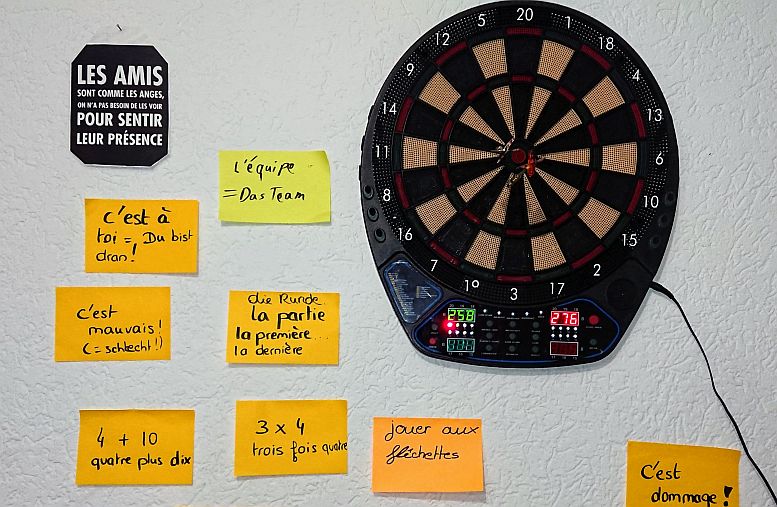 LES AMIS
SONT COMME LES ANGES,
ON N'A PAS BESOIN DE LES VOIR
POUR SENTIR
LEUR PRÉSENCE
L'équipe
= Das Team
c'est à
toi = Du bist
dran!
c'est
mauvais!
(= schlecht!)
die Runde
la partie
la première....
la dernière
4 + 10
quatre plus dix
3 x 4
trois fois quatre
jouer aux
fléchettes
C'est
dommage!
20
1
18
4
13
6
10
15
2
17
3
19
7
16
8
11
14
9
12
5
258
276